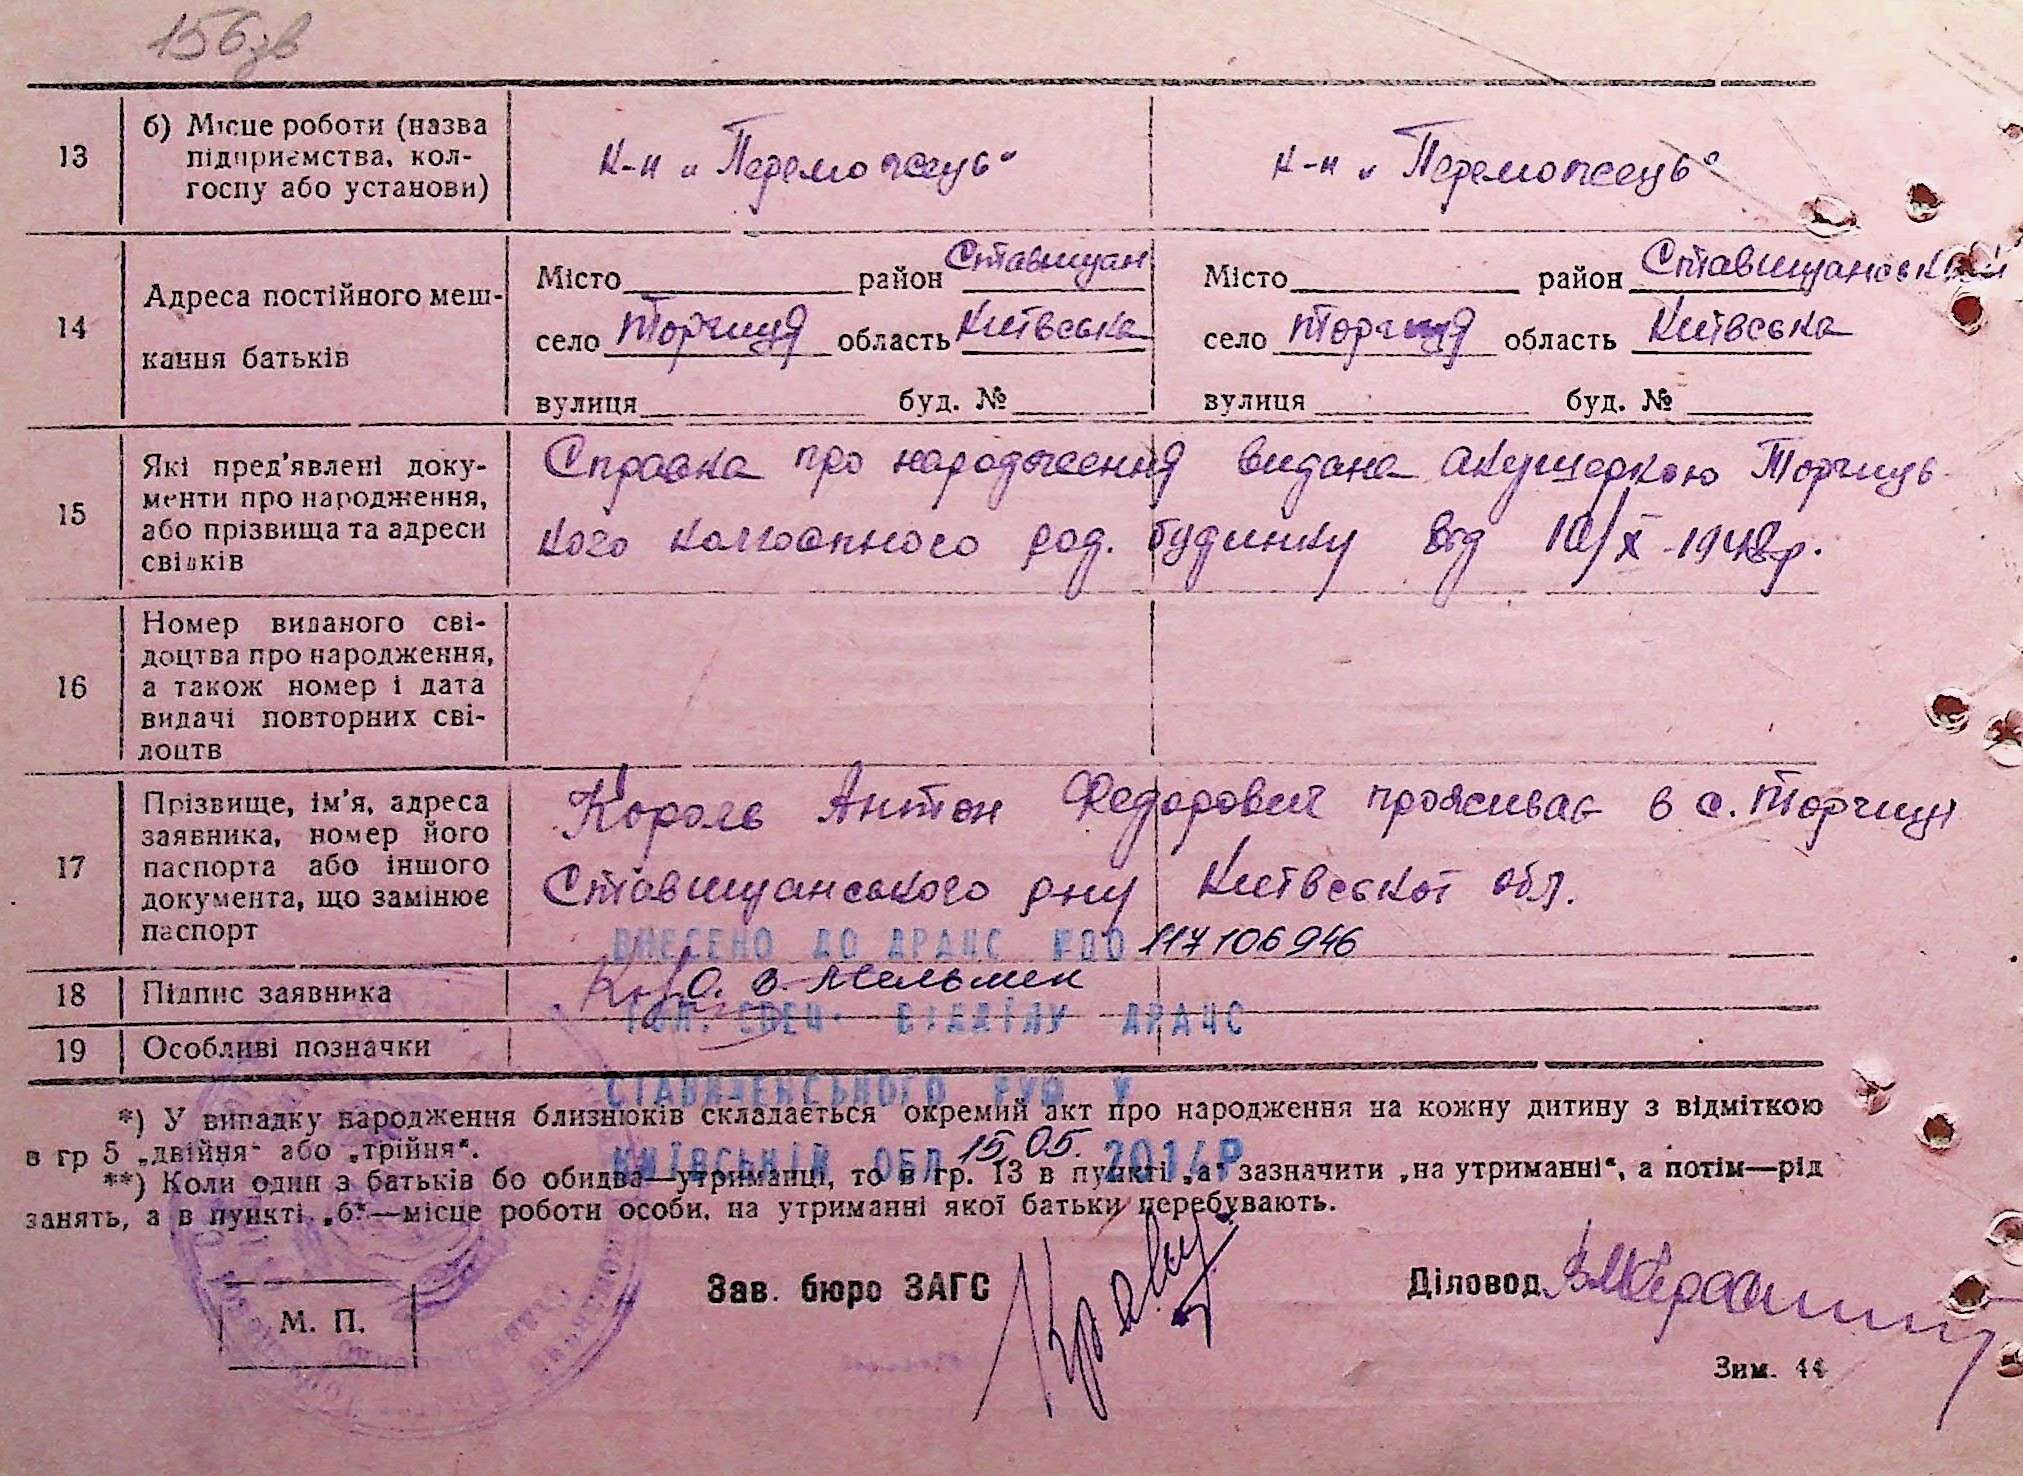 156зв
13 б) Місце роботи (назва
підприємства, кол-
госпу або установи)
к-п „Переможець“ к-п „Переможець“
14 Адреса постійного меш-
кання батьків
Місто район Ставищан Місто район Ставищанський
село Торчиця область Київська село Торчиця область Київська
вулиця буд. № вулиця буд. №
15 Які пред'явлені доку-
менти про народження,
або прізвища та адреси
свідків
Справка про народження видана акушеркою Торчиць-
кого колгоспного род. будинку від 10/X-1948р.
16 Номер виданого сві-
доцтва про народження,
а також номер і дата
видачі повторних сві-
доцтв
17 Прізвище, ім'я, адреса
заявника, номер його
паспорта або іншого
документа, що замінює
паспорт
Король Антон Федорович проживає в с. Торчиці
Ставищанського рну Київської обл.
ВНЕСЕНО ДО ДРАЦС 117106946
18 Підпис заявника
О. В. Мельник
ГОЛ. СПЕЦ. ВІДДІЛУ ДРАЦС
19 Особливі позначки
СТАВИЩЕНСЬКОГО РУЮ У
*) У випадку народження близнюків складається окремий акт про народження на кожну дитину з відміткою
в гр 5 „двійня“ або „трійня“.
КИЇВСЬКІЙ ОБЛ 15.05. 2014Р
**) Коли один з батьків бо обидва—утриманці, то в гр. 13 в пункті „а“ зазначити „на утриманні“, а потім—рід
занять, а в пункті „б“—місце роботи особи, на утриманні якої батьки перебувають.
М. П.
Зав. бюро ЗАГС
Діловод
Зим. 44